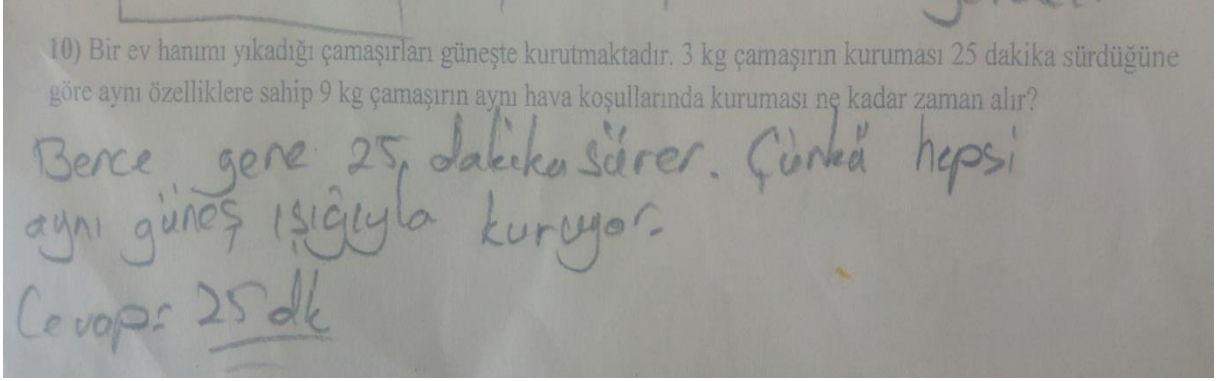 10) Bir ev hanımı yıkadığı çamaşırları güneşte kurutmaktadır. 3 kg çamaşırın kuruması 25 dakika sürdüğüne
göre aynı özelliklere sahip 9 kg çamaşırın aynı hava koşullarında kuruması ne kadar zaman alır?
Bence gene 25 dakika sürer. Çünkü hepsi
aynı güneş ışığıyla kuruyor.
Cevap: 25 dk